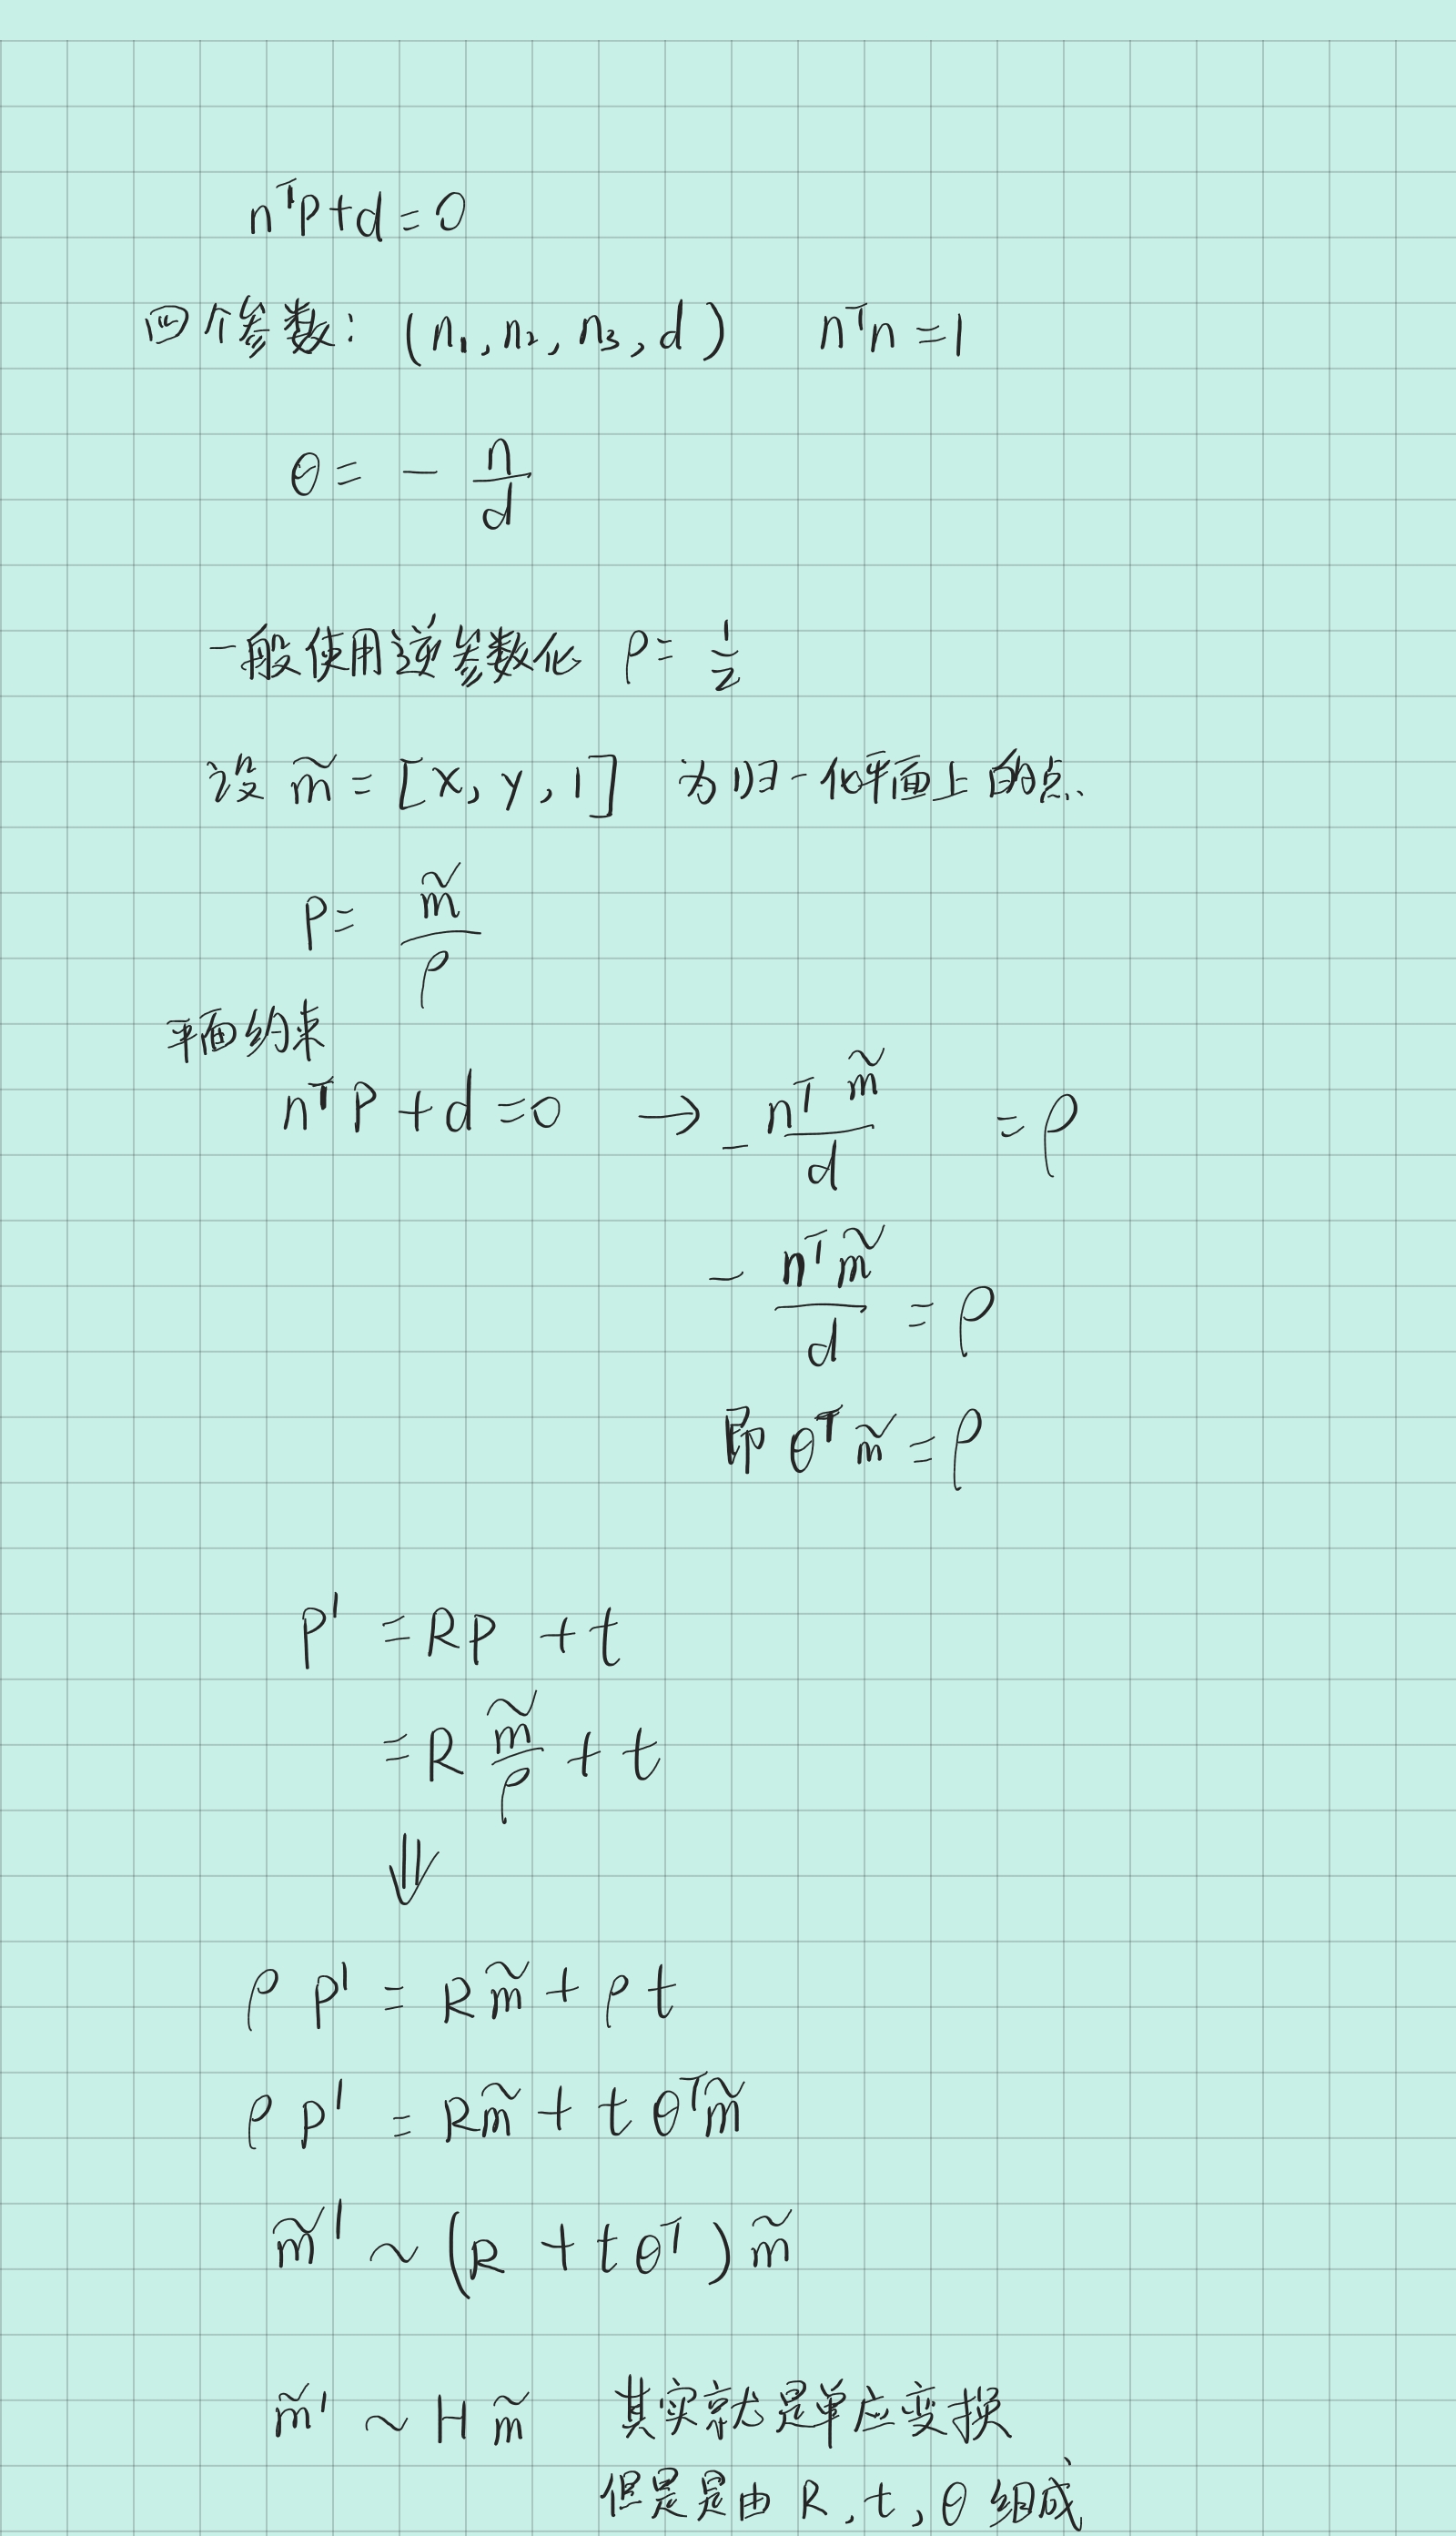 nᵀp+d=0
四个参数: (n₁, n₂, n₃, d) nᵀn=1
θ= - n/d
一般使用逆参数化 ρ= 1/z
设 m̃ = [x, y, 1] 为归一化平面上的点.
P= m̃/ρ
平面约束
nᵀP+d=0 → - nᵀm̃/d =ρ
- nᵀm̃/d = ρ
即 θᵀm̃=ρ
P' =RP +t
=R m̃/ρ + t
⇓
ρ P' = Rm̃ + ρt
ρ P' = Rm̃ + tθᵀm̃
m̃' ~ (R + tθᵀ)m̃
m̃' ~ Hm̃ 其实就是单应变换
但是是由 R, t, θ 组成